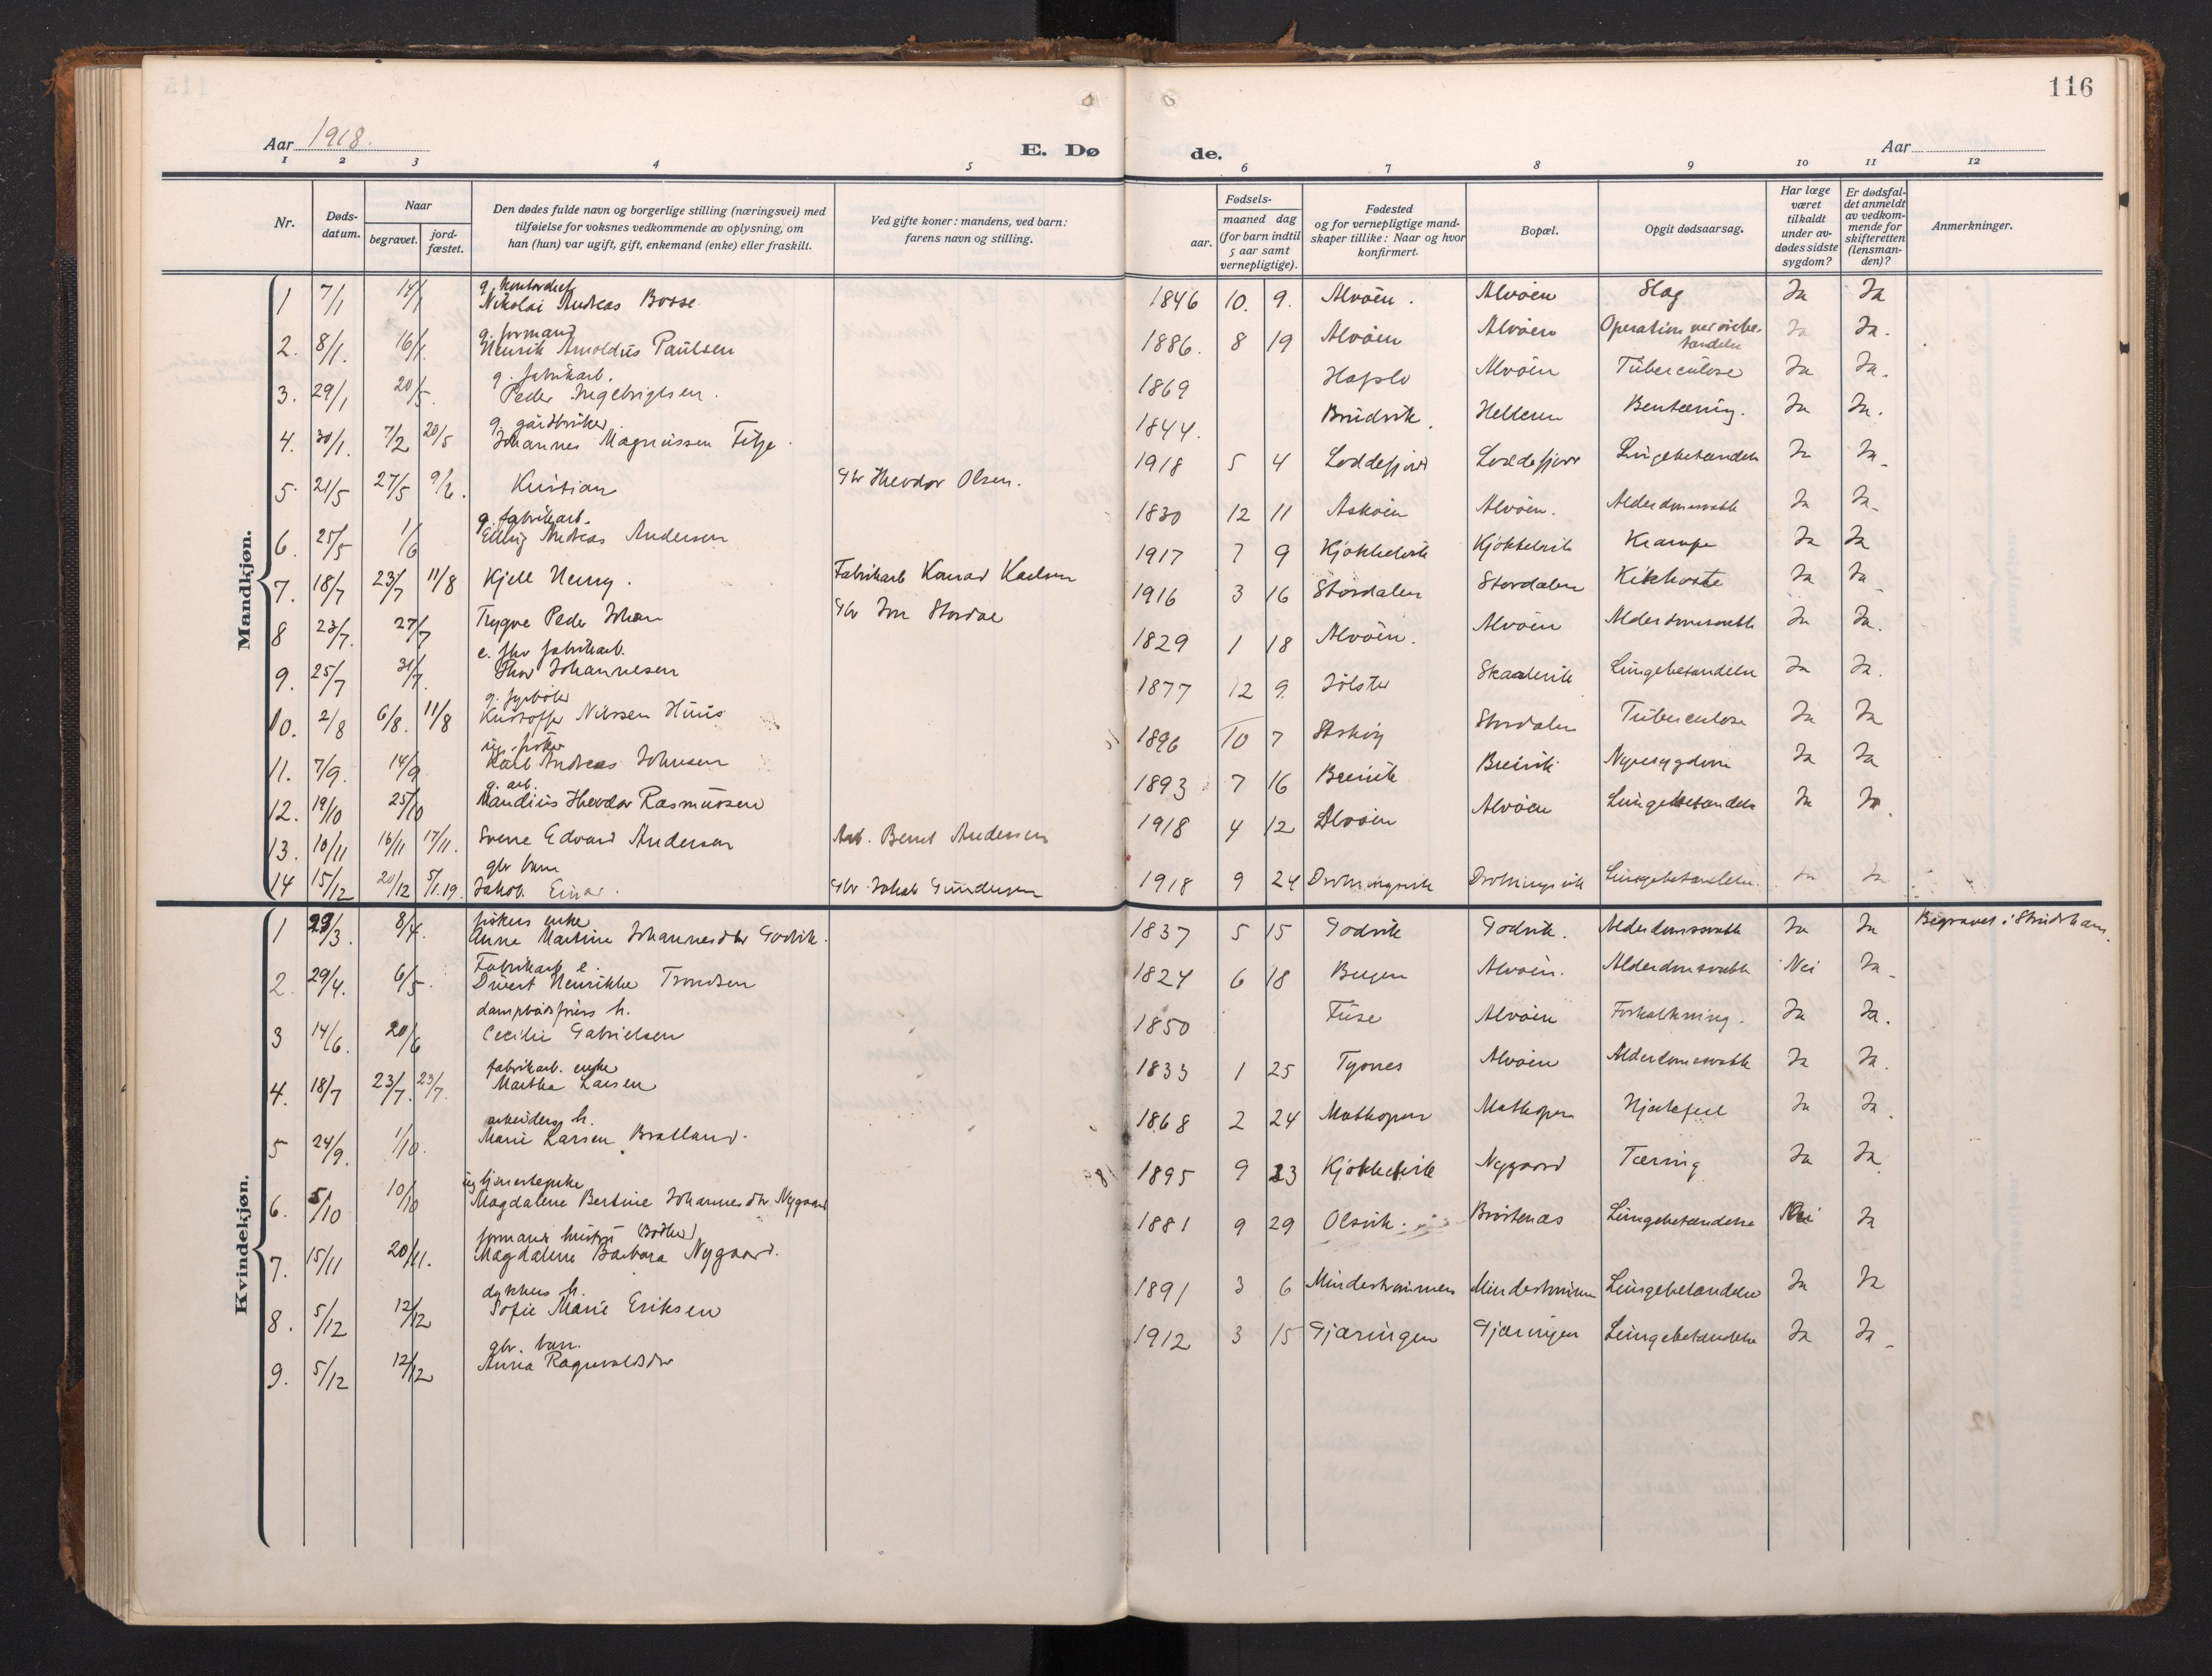 116
Aar 1918.
E. Dø de.
Aar
1 2 3 4 5 6 7 8 9 10 11 12
Nr.
Døds-datum.
Naar
begravet.
jord-fæstet.
Den dødes fulde navn og borgerlige stilling (næringsvei) med
tilføielse for voksnes vedkommende av oplysning, om
han (hun) var ugift, gift, enkemand (enke) eller fraskilt.
Ved gifte koner: mandens, ved barn:
farens navn og stilling.
Fødsels-
aar.
maaned dag
(for barn indtil
5 aar samt
vernepligtige).
Fødested
og for vernepligtige mand-
skaper tillike: Naar og hvor
konfirmert.
Bopæl.
Opgit dødsaarsag.
Har læge
været
tilkaldt
under av-
dødes sidste
sygdom?
Er dødsfal-
det anmeldt
av vedkom-
mende for
skifteretten
(lensman-
den)?
Anmerkninger.
Mandkjøn.
1 7/1 14/1 Nikolai Andreas Bosse 1846 10. 9. Alvøen. Alvøen Slag Ja Ja
g. formand
2. 8/1. 16/1. Henrik Arnoldus Paulsen 1886. 8 19 Alvøen Alvøen Operation Ja Ja.
g. fabrikarb.
3. 29/1 20/5. Peder Ingebrigtsen. 1869 Hafslo Alvøen Tuberculose Ja Ja.
g. gårdbruker
4. 30/1. 7/2 20/5 Johannes Magnussen 1844. Bruvik. Helleren Ja Ja.
5. 21/5 27/5 9/6. Kristian Gbr Theodor Olsen. 1918 5 4 Loddefjord Loddefjord Lungebetændelse Ja Ja.
g. fabrikarb.
6. 25/5 1/6 Andreas Andersen 1830 12 11 Askøen Alvøen. Alderdomssvakh Ja Ja.
7. 18/7 23/7 11/8 Kjell Henry. Fabrikarb Konrad Karlsen 1917 7 9 Kjøkkelvik Kjøkkelvik Krampe Ja Ja
8 23/7. 27/7 Trygve Peder Johan Gbr 1916 3 16 Stordalen Stordalen Kikhoste Ja Ja
fabrikarb.
9. 25/7 31/7. Thor Johannesen 1829 1 18 Alvøen. Alvøen Alderdomssvakh Ja Ja.
g. fyrbøter
10. 2/8 6/8. 11/8 Kristoffer Nilssen Huus 1877 12 9. Jølster Lungebetændelse Ja Ja.
ug. fisker
11. 7/9. 14/9 Karl Andreas Johnsen 1896 10 7 Askøy Stordalen Tuberculose Ja Ja
g. arb.
12. 19/10 25/10 Theodor Rasmussen 1893 7 16 Breivik Breivik Nyresygdom Ja Ja
13. 10/11 16/11 17/11. Sverre Edvard Andersen Arb. Bernt Andersen 1918 4 12 Alvøen Alvøen Lungebetændels Ja Ja.
gbr barn
14 15/12 20/12 5/1.19. Jakob Einar. Gbr Jakob Gundersen 1918 9 24 Drotningsvik Drotningsvik Lungebetændelse. Ja Ja
Kvindekjøn.
fiskers enke
1 29/3. 8/4. Anna Martine Johannesdtr Godvik. 1837 5 15 Godvik Godvik. Alderdomssvakh Ja Ja Begravet i
Fabrikarb e.
2. 29/4. 6/5. Henrikke Trondsen 1824 6 18 Bergen Alvøen. Alderdomssvakh Nei Ja
3 14/6. 20/6 Cecilie Gabrielsen 1850 Fuse Alvøen Forkalkning. Ja Ja.
fabrikarb. enke
4. 18/7 23/7. 23/7. Martha Larsen 1833 1 25 Tysnes Alvøen Alderdomssvakh Ja Ja.
arbeiders h.
5 24/9. 1/10. Marie Larsen Bratland. 1868 2 24 Mathopen Mathopen Hjertefeil Ja Ja.
ug tjenestepike
6. 5/10 10/10 Magdalene Bertine Johannesdtr Nygaard 1895 9 23 Kjøkkelvik Nygaard Tæring Ja Ja.
formands hustru
7. 15/11 20/11. Magdalene Barbara Nygaard. 1881 9 29 Olsvik. Lungebetændelse Nei Ja
dykkers h.
8. 5/12 12/12 Sofie Marie Eriksen 1891 3 6 Mindeshavnen Lungebetændelse Ja Ja
gbr. barn.
9. 5/12 12/12 Anna Ragnvaldsdtr 1912 3 15 Gjæringen Gjæringen Lungebetændelse Ja Ja